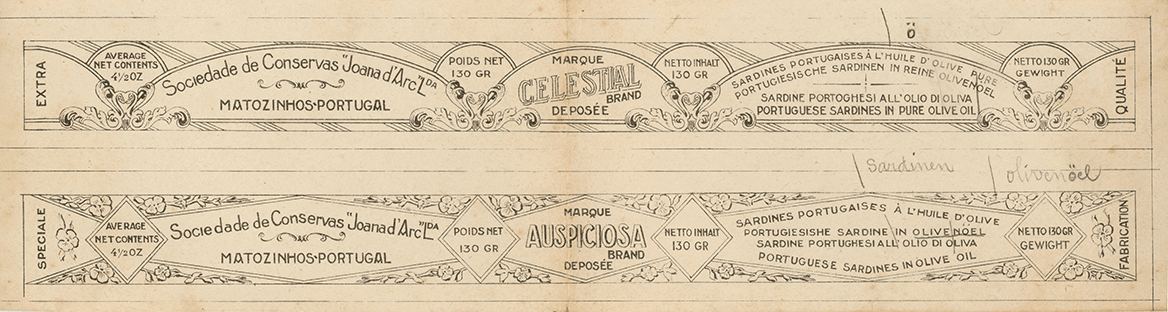 ö
EXTRA
AVERAGE
NET CONTENTS
4½ OZ
Sociedade de Conservas "Joana d'Arc" LDA
MATOZINHOS·PORTUGAL
POIDS NET
130 GR
MARQUE
CELESTIAL
BRAND
DEPOSÉE
NETTO INHALT
130 GR
SARDINES PORTUGAISES À L'HUILE D'OLIVE PURE
PORTUGIESISCHE SARDINEN IN REINE OLIVENOEL
SARDINE PORTOGHESI ALL'OLIO DI OLIVA
PORTUGUESE SARDINES IN PURE OLIVE OIL
NETTO 130 GR
GEWIGHT
QUALITÉ
sardinen olivenöel
SPECIALE
AVERAGE
NET CONTENTS
4½ OZ
Sociedade de Conservas "Joana d'Arc" LDA
MATOZINHOS·PORTUGAL
POIDS NET
130 GR
MARQUE
AUSPICIOSA
BRAND
DEPOSÉE
NETTO INHALT
130 GR
SARDINES PORTUGAISES À L'HUILE D'OLIVE
PORTUGIESISHE SARDINE IN OLIVENOEL
SARDINE PORTUGHESI ALL'OLIO DI OLIVA
PORTUGUESE SARDINES IN OLIVE OIL
NETTO 130 GR
GEWIGHT
FABRICATION